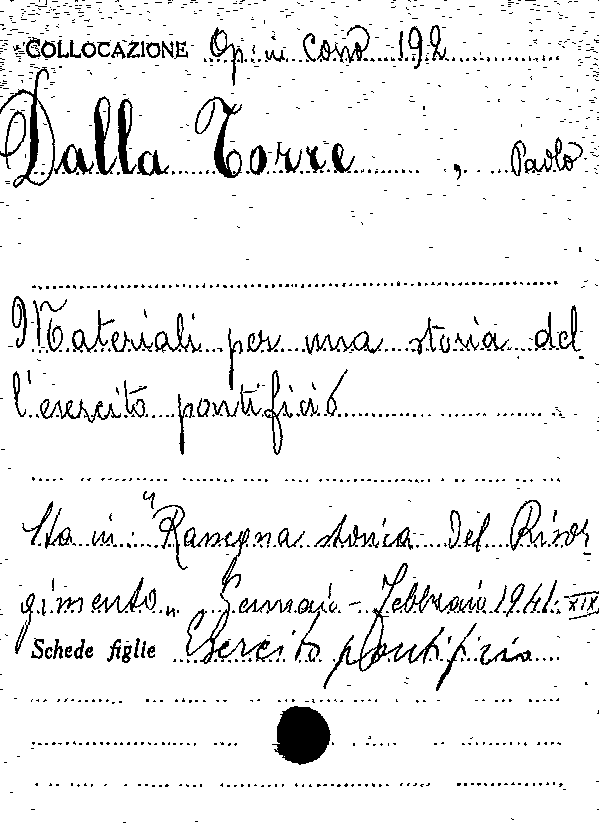 COLLOCAZIONE Op. in Cons 192
Dalla Torre, Paolo
Materiali per una storia del
l'esercito pontificio
Sta in: "Rassegna storica del Risor
gimento" Gennaio - Febbraio 1941. XIX
Schede figlie Esercito pontificio